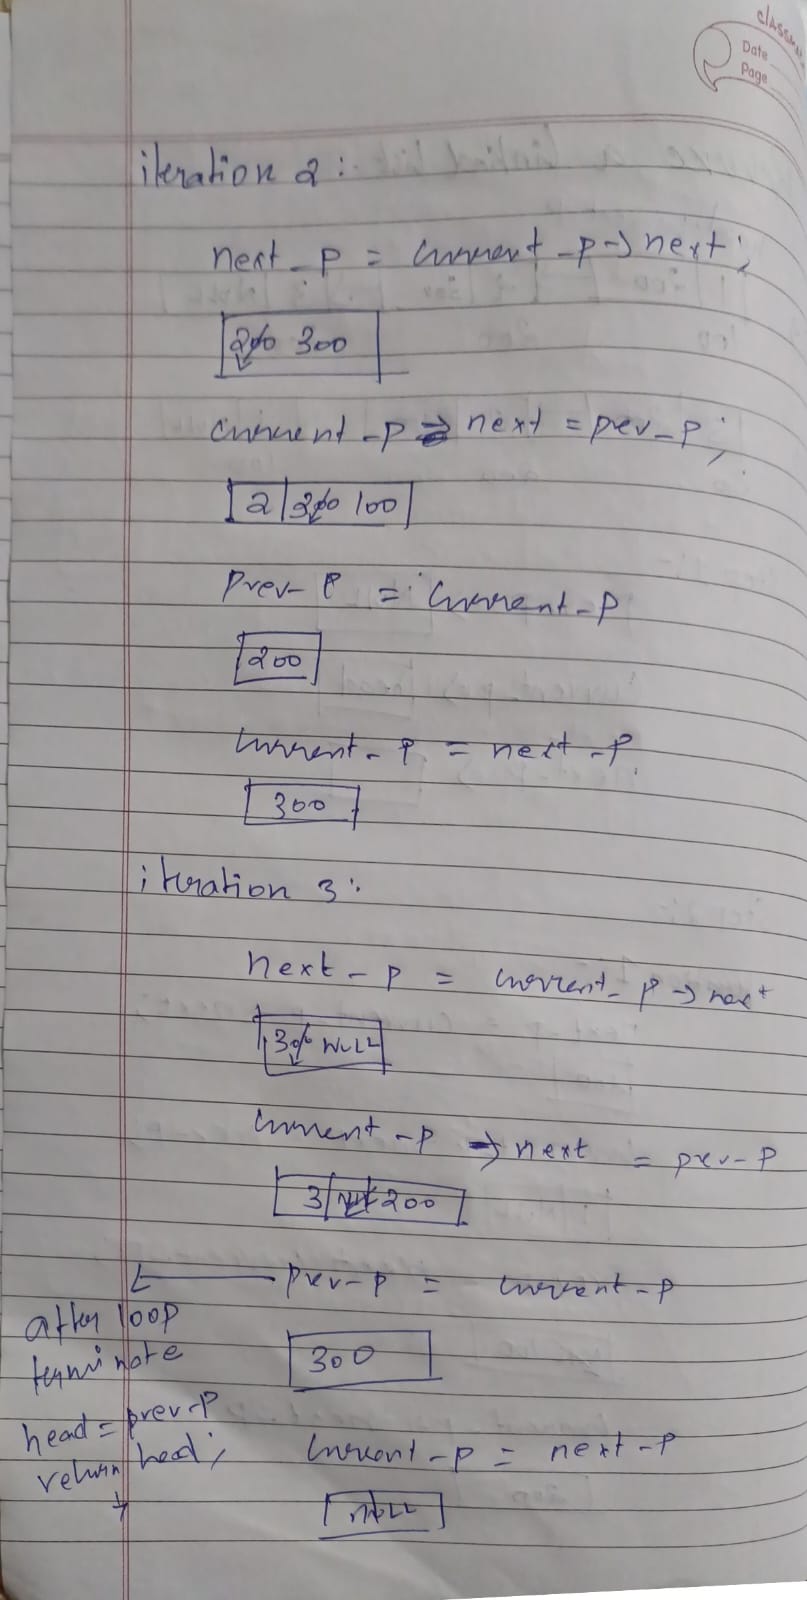 classmate
Date
Page
iteration 2:
next_p = current_p->next;
200 300
current_p->next = prev_p;
2 | 300 100
prev_p = current_p
200
current_p = next_p
300
iteration 3:
next_p = current_p -> next
300 NULL
current_p -> next = prev_p
3 | NULL 200
prev_p = current_p
300
current_p = next_p
NULL
after loop
terminate
head = prev_p
return head;